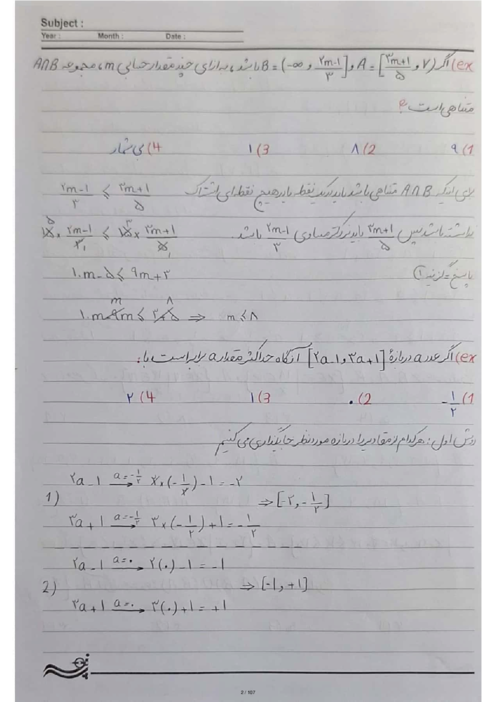 Subject :
Year : Month : Date :
ex) اگر A = [(3m+1)/5 , 7) و B = (-∞ , (2m-1)/3] باشد، به ازای چند مقدار حسابی m، مجموعه A∩B
متناهی است؟
1) 9 2) 8 3) 1 4) بی شمار
برای اینکه A∩B متناهی باشد باید یک نقطه یا هیچ نقطه ای اشتراک (2m-1)/3 ≤ (3m+1)/5
داشته باشند پس (3m+1)/5 باید بزرگتر مساوی (2m-1)/3 باشد 15 × (2m-1)/3 ≤ 15 × (3m+1)/5
پاسخ گزینه 1 10m - 5 ≤ 9m + 3
10m - 9m ≤ 3 + 5 ⇒ m ≤ 8
ex) اگر عدد a در بازهٔ [2a-1 , 3a+1] آنگاه حداکثر مقدار a برابر است با:
1) -1/2 2) 0 3) 1 4) 2
روش اول: هر کدام از مقادیر را در بازه مورد نظر جایگذاری می کنیم
2a-1 a=-1/2 → 2×(-1/2)-1 = -2
1) ⇒ [-2, -1/2]
3a+1 a=-1/2 → 3×(-1/2)+1 = -1/2
2a-1 a=0 → 2(0)-1 = -1
2) ⇒ [-1, +1]
3a+1 a=0 → 3(0)+1 = +1
3 / 167